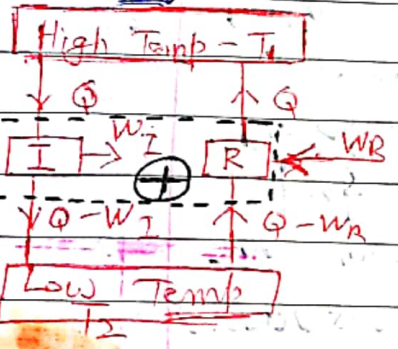 High Temp - T1
Q Q
WI
I R WB
Q-WI Q-WR
Low Temp
T2